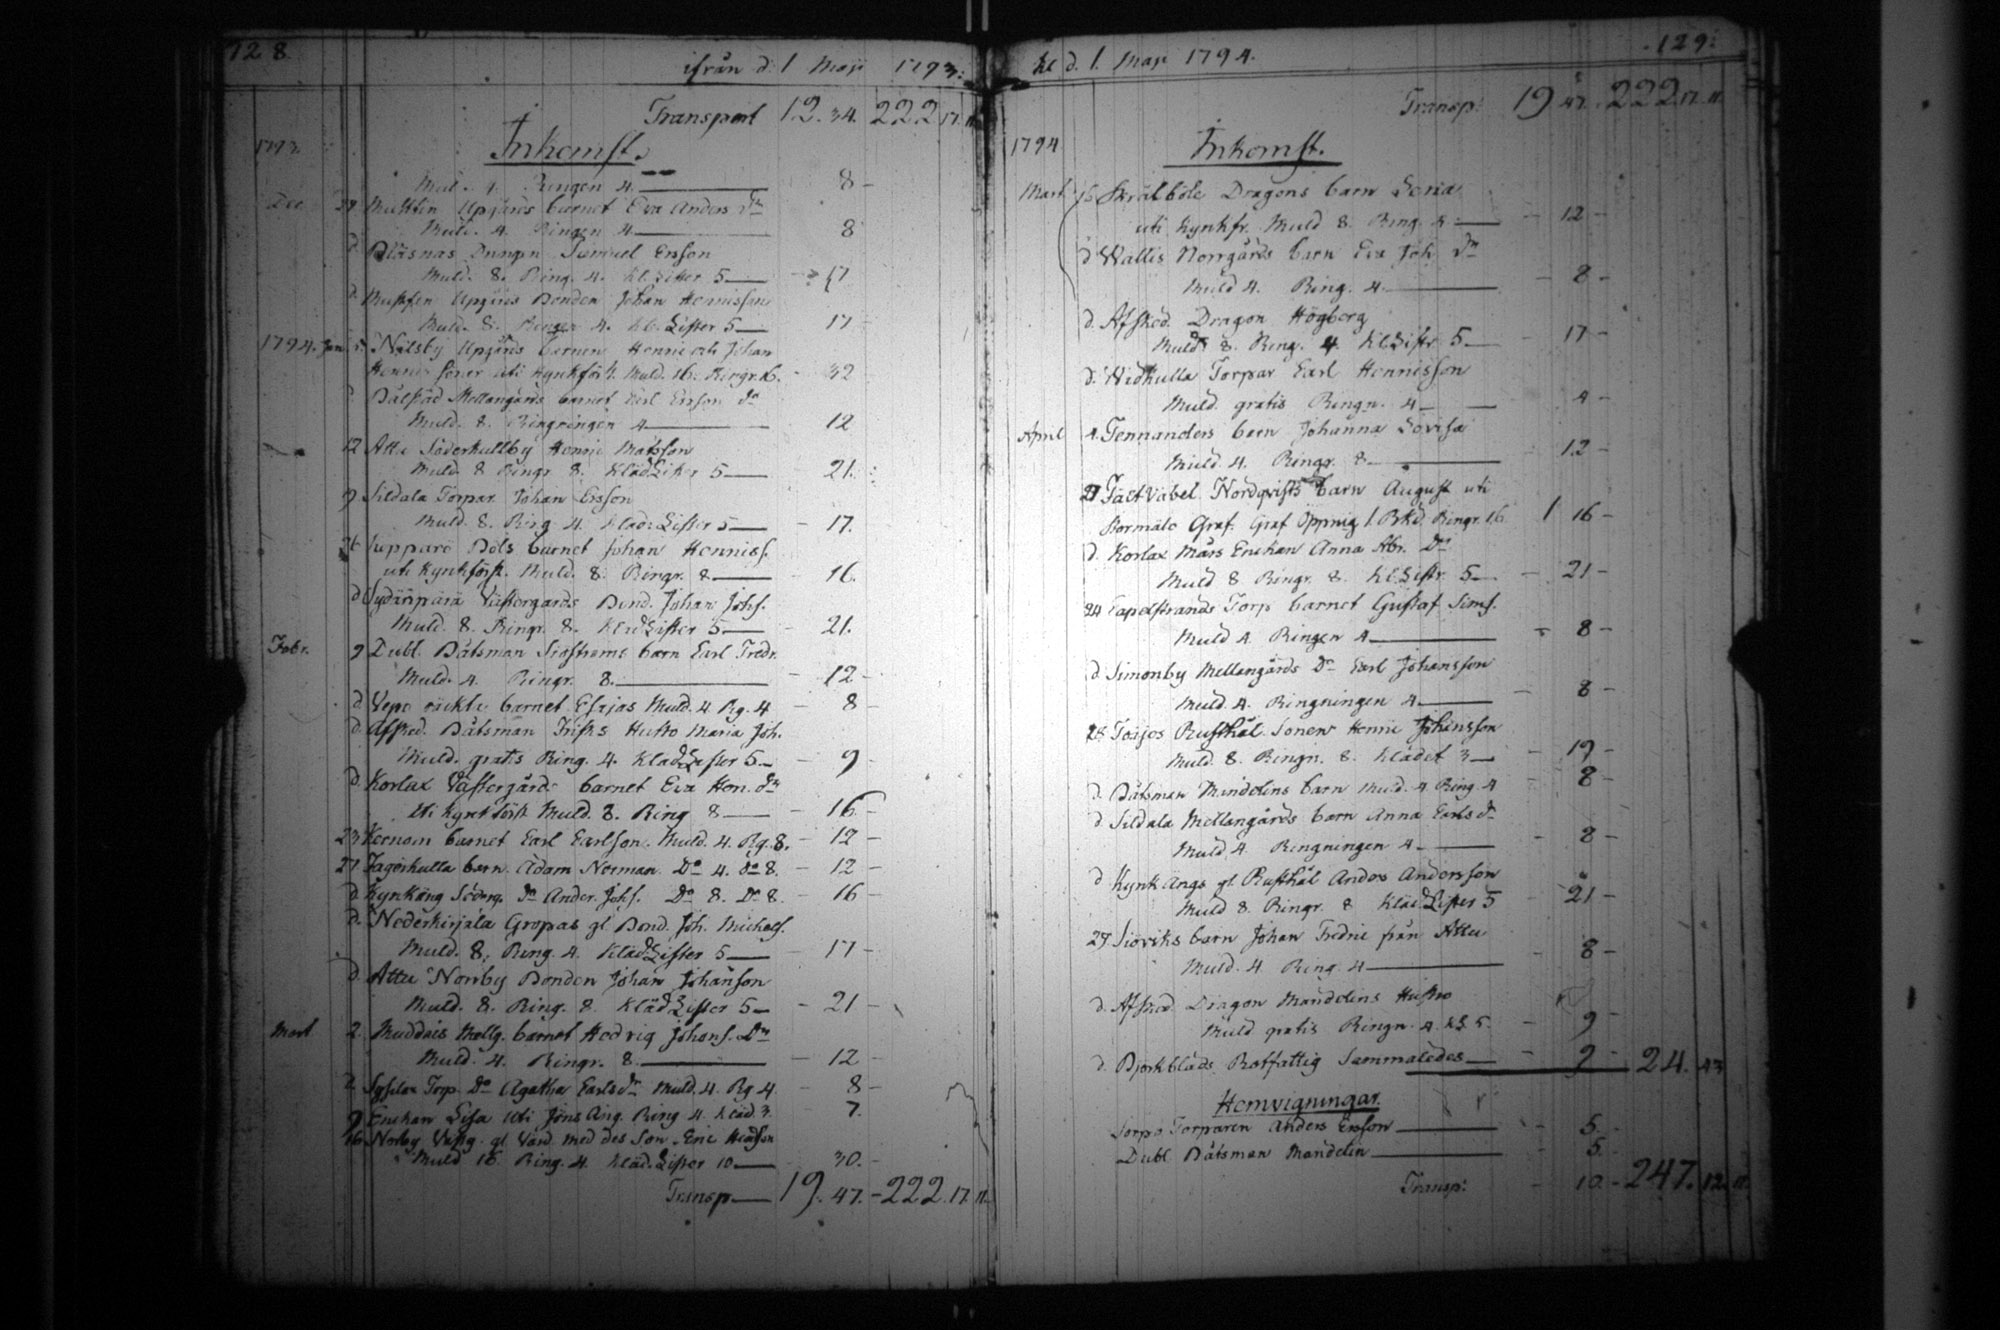 128.
ifrån d. 1 Maji 1793.
Transport 12. 34. 222. 17. 11.
1793.
Inkomst.
Muld. 4. Ringen 4. 8
Dec. barnet Eva Anders dr
Muld. 4. Ringen 4 8
d. Samuel Ersson
Muld. 8. Ring. 4. Kl. Lifter 5 17
d. Upgårds Bonden Johan Hennisson
Muld. 8. Ringen 4. Kl. Lifter 5 17
1794. Jan. 5. Nilsby Upgårds barnen Henric och Johan
söner uti Kynkförst. Muld. 16. Ringr. 16. 32
d. Mellangårds barnet Carl Ersson
Muld. 8. Ringningen 4 12
12 Attu Söderkullby Henric Matsson
Muld. 8 Ringr. 8. Kläd Lifter 5 21.
9 Sildala Torpar. Johan Ersson
Muld. 8. Ring 4. Kläd. Lifter 5 17.
26 barnet Johan Henniss.
uti Kynkförst. Muld. 8. Ringr. 8 16.
d. Västergårds Bond. Johan Johs.
Muld. 8. Ringr. 8. Kläd Lifter 5 21.
Febr. 9 Dubl. Båtsman Siöströms barn Carl Fredr.
Muld. 4. Ringr. 8. 12
d. barnet Esajas Muld. 4 Rg. 4 8
d. Afsked. Båtsman Frisks Hustro Maria Joh.
Muld. gratis Ring. 4. Kläd Lifter 5 9
d. Korlax Västergårds barnet Eva Hen. dr
Uti Kynkförst Muld. 8. Ring 8 16
23 barnet Carl Carlson. Muld. 4. Rg. 8. 12
27 Jagerkulla barn. Adam Norman Do 4. do 8. 12
d. Kynkäng Söderg. do Ander. Johs. Do 8. Do 8 16
d. Nederkirjala Gropas gl. Bond. Joh. Michels.
Muld. 8, Ring. 4. Kläd Lifter 5 17
d. Attu Norrby Bonden Johan Johanson
Muld. 8. Ring. 8. Kläd Lifter 5 21
Mart. 2. Muddais Mellg. barnet Hedvig Johans. Dr
Muld. 4. Ringr. 8. 12
d. Torp. Do Agatha Carlsdr Muld. 4. Rg 4 8
9 Enchan Lisa Uti Jöns Äng. Ring 4. Kläd. 3. 7.
16 Norby Västg. gl. Värd. med des Son Eric
Muld. 16. Ring. 4. Kläd. Lifter 10 30.
Transp. 19. 47. 222. 17. 11.
129.
til d. 1. Maji 1794.
Transp. 19 47. 222. 17. 11.
1794
Inkomst.
Mart. 16 Skrälböle Dragons barn Lovisa
uti Kynkfr. Muld 8. Ring. 4 12
d. Wallis Norrgårds barn Eva Joh. Dr
Muld 4. Ring. 4. 8
d. Afsked. Dragon Högberg
Muld. 8. Ring. 4. Kl Liftr 5 17
d. Widkulla Torpar Carl Hennisson
Muld. gratis Ringn. 4 4
April 4. Tennanders barn Johanna Lovisa
Muld. 4. Ringr. 8. 12
21 Fältväbel Nordqvists barn August uti
Bormålo Graf. Graf Öppnig 1. Rkd. Ringr. 16 1 16
d. Korlax Mårs Enchan Anna Abr. Dr
Muld 8 Ringr. 8. Kl. Liftr. 5 21
24 Capelstrands Torp barnet Gustaf Sims.
Muld 4. Ringen 4 8
d. Simonby Mellangårds Do Carl Johansson
Muld. 4. Ringningen 4 8
25 Rusthål. Sonen Henric Johansson
Muld. 8. Ringn. 8. Klädet 3 19
d. Båtsman Mandelins barn Muld. 4 Ring. 4 8
d. Sildala Mellangårds barn Anna Carlsdr
Muld 4. Ringningen 4 8
d. Kynk Ängs gl. Rusthål Anders Andersson
Muld 8. Ringr. 8 Kläd Lifter 5 21
27 Siöviks barn Johan Fredric från Attu
Muld. 4. Ring. 4 8
d. Afsked Dragon Mandelins Hustro
Muld gratis Ringn. 4. Kl. 5. 9
d. Björkblads Rotfattig Sammaledes 9 24. 43
Hemvigningar.
Torparen Anders Ersson 5.
Dubl. Båtsman Mandelin 5.
Transp: 10. 247. 12. 11.